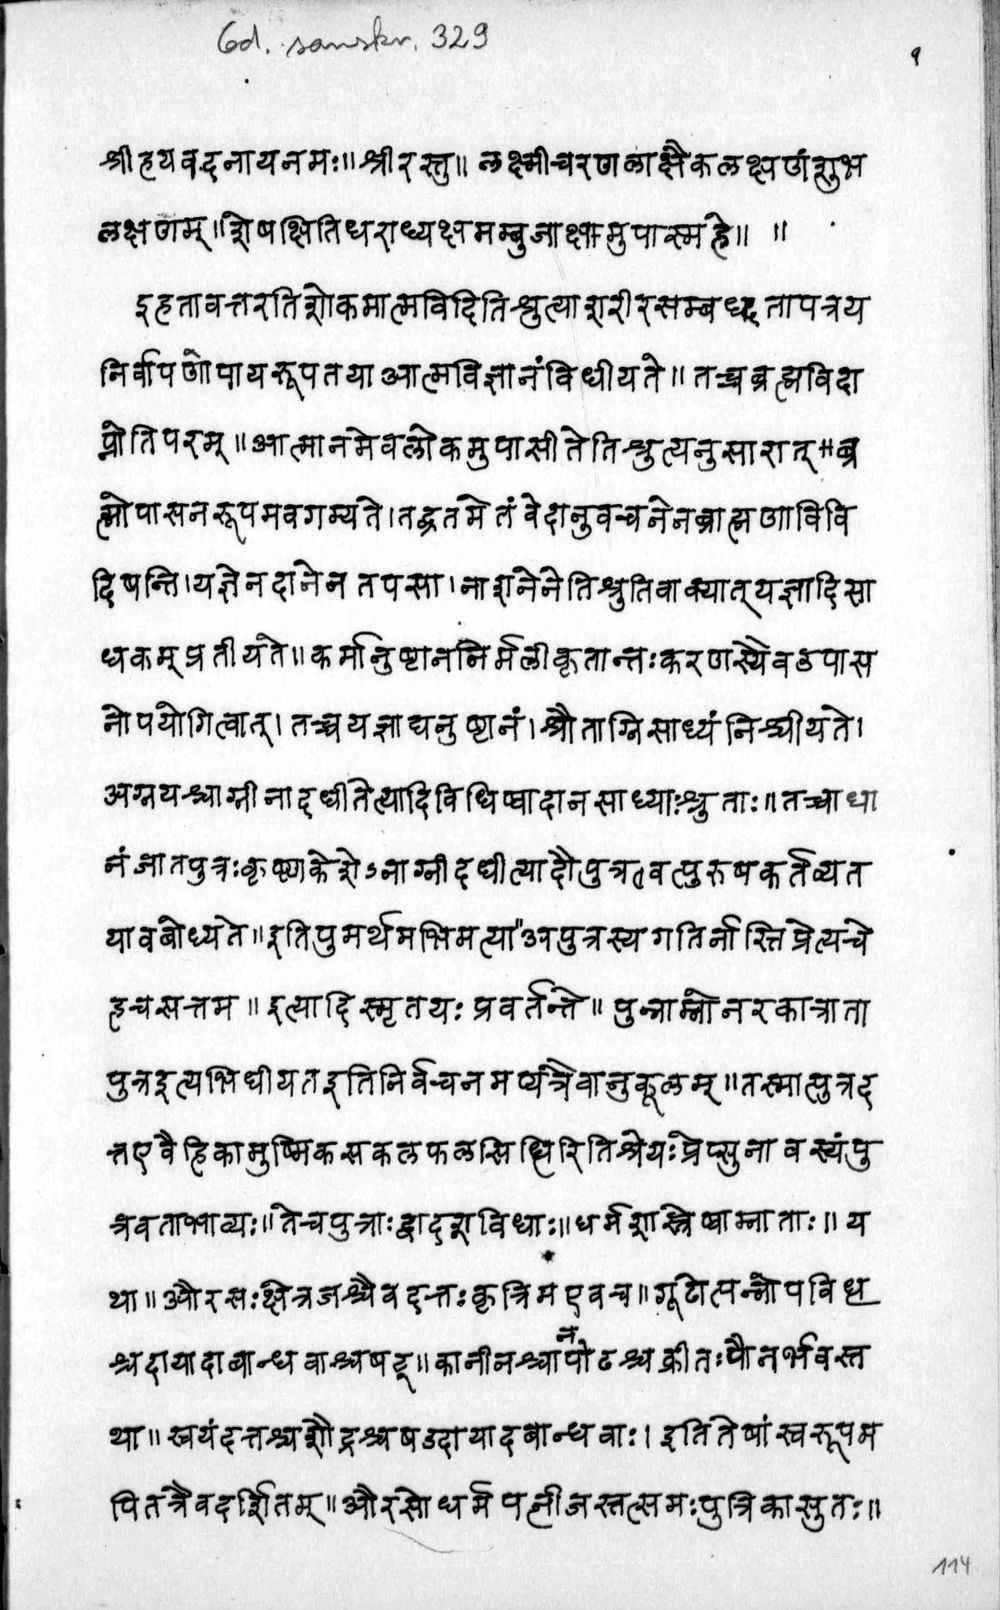 Cod. sanskr. 329
१
श्रीहयवदनायनमः॥श्रीरस्तु॥ लक्ष्मीचरणलाक्षैकलक्षणंशुभ
लक्षणम्॥शेषक्षितिधराध्यक्षमम्बुजाक्षमुपास्महे॥ ॥
इहतावत्तरतिशोकमात्मविदितिश्रुत्याशरीरसम्बद्धतापत्रय
निर्वापणोपायरूपतयाआत्मविज्ञानंविधीयते॥ तच्चब्रह्मविदा
प्नोतिपरम्॥आत्मानमेवलोकमुपासीतेतिश्रुत्यनुसारात्॥ब्र
ह्मोपासनरूपमवगम्यते।तद्धतमेतंवेदानुवचनेनब्राह्मणाविवि
दिषन्ति।यज्ञेनदानेनतपसा।नाशनेनेतिश्रुतिवाक्यात्यज्ञादिसा
धकम्प्रतीयते॥कर्मानुष्ठाननिर्मलीकृतान्तःकरणस्यैवउपास
नोपयोगित्वात्।तच्चयज्ञाद्यनुष्ठानं।श्रौताग्निसाध्यंनिश्चीयते।
अग्नयश्चाग्नीनादधीतेत्यादिविधिष्वादानसाध्याःश्रुताः॥तच्चाधा
नंजातपुत्रःकृष्णकेशोऽनाग्नीदधीत्यादौपुत्रवत्पुरुषकर्तव्यत
यावबोध्यते॥इतिपुमर्थमभिमत्या"अपुत्रस्यगतिर्नास्तिप्रेत्यचे
हचसत्तम॥इत्यादिस्मृतयःप्रवर्तन्ते॥पुन्नाम्नोनरकात्राता
पुत्रइत्यभिधीयतइतिनिर्वचनमप्यत्रैवानुकूलम्॥तस्मात्पुत्रद
त्तएवैहिकामुष्मिकसकलफलसिद्धिरितिश्रेयःप्रेप्सुनावस्यंपु
त्रवताभाव्यः॥तेचपुत्राःद्वादशविधाः॥धर्मशास्त्रेष्वाम्नाताः॥य
था॥औरसःक्षेत्रजश्चैवदत्तःकृत्रिमएवच॥गूढोत्पन्नोपविध
श्चदायादाबान्धवाश्चषट्॥कानीनश्चापनोढश्चक्रीतःपौनर्भवस्त
था॥स्वयंदत्तश्चशौद्रश्चषडदायादबान्धवाः।इतितेषांस्वरूपम
पितत्रैवदर्शितम्॥औरसोधर्मपत्नीजस्तत्समःपुत्रिकासुतः॥
114